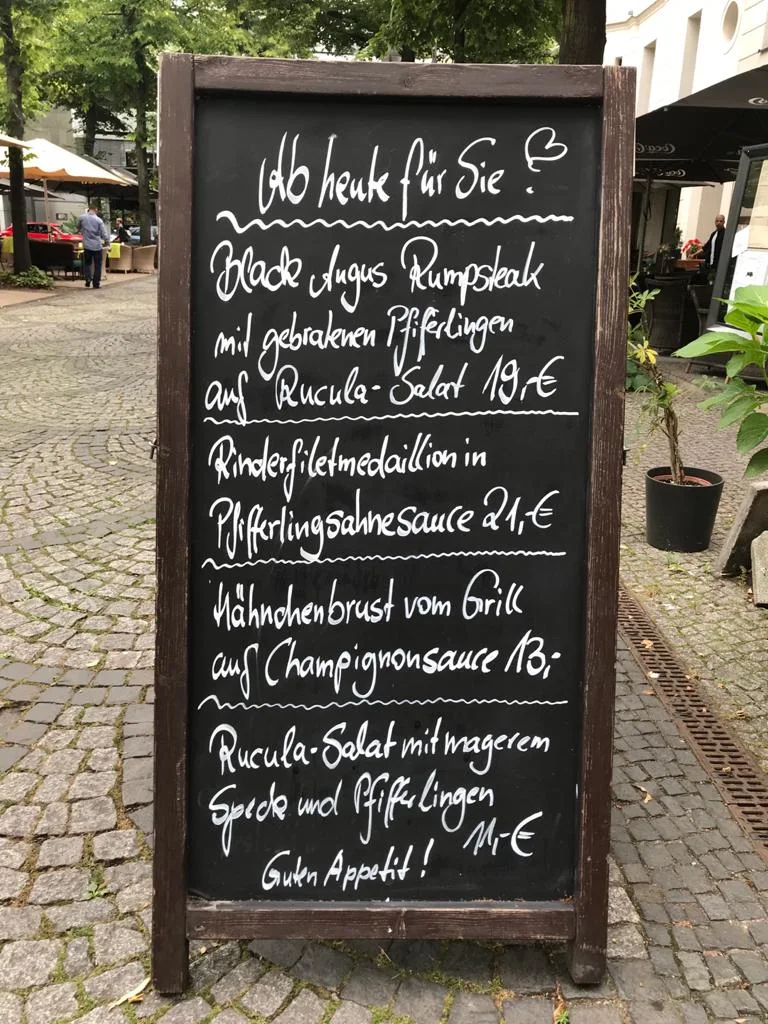 Ab heute für Sie
Black Angus Rumpsteak
mit gebratenen Pfiferlingen
auf Rucula-Salat 19,-€
Rinderfiletmedaillion in
Pfifferlingsahnesauce 21,-€
Hähnchenbrust vom Grill
auf Champignonsauce 13,-
Rucula-Salat mit magerem
Speck und Pfifferlingen
11,-€
Guten Appetit!
Coca-Cola